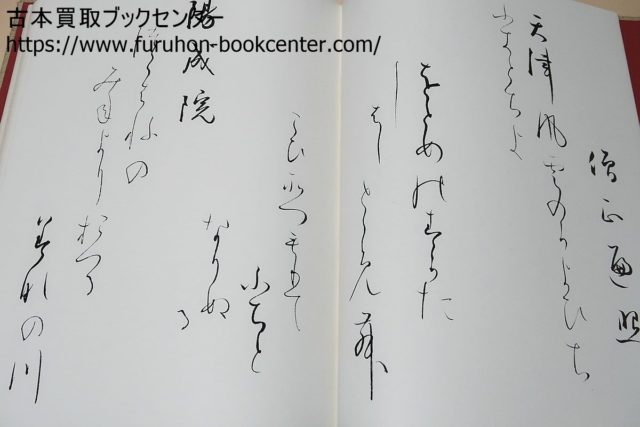 古本買取ブックセンター
https://www.furuhon-bookcenter.com/
僧正遍昭
天津風雲のかよひち
ふきとちよ
をとめのすかた
しはしとゝめん
陽成院
つくはねの
みねよりおつる
みなの川
こひそつもりて
ふちと
なりぬる